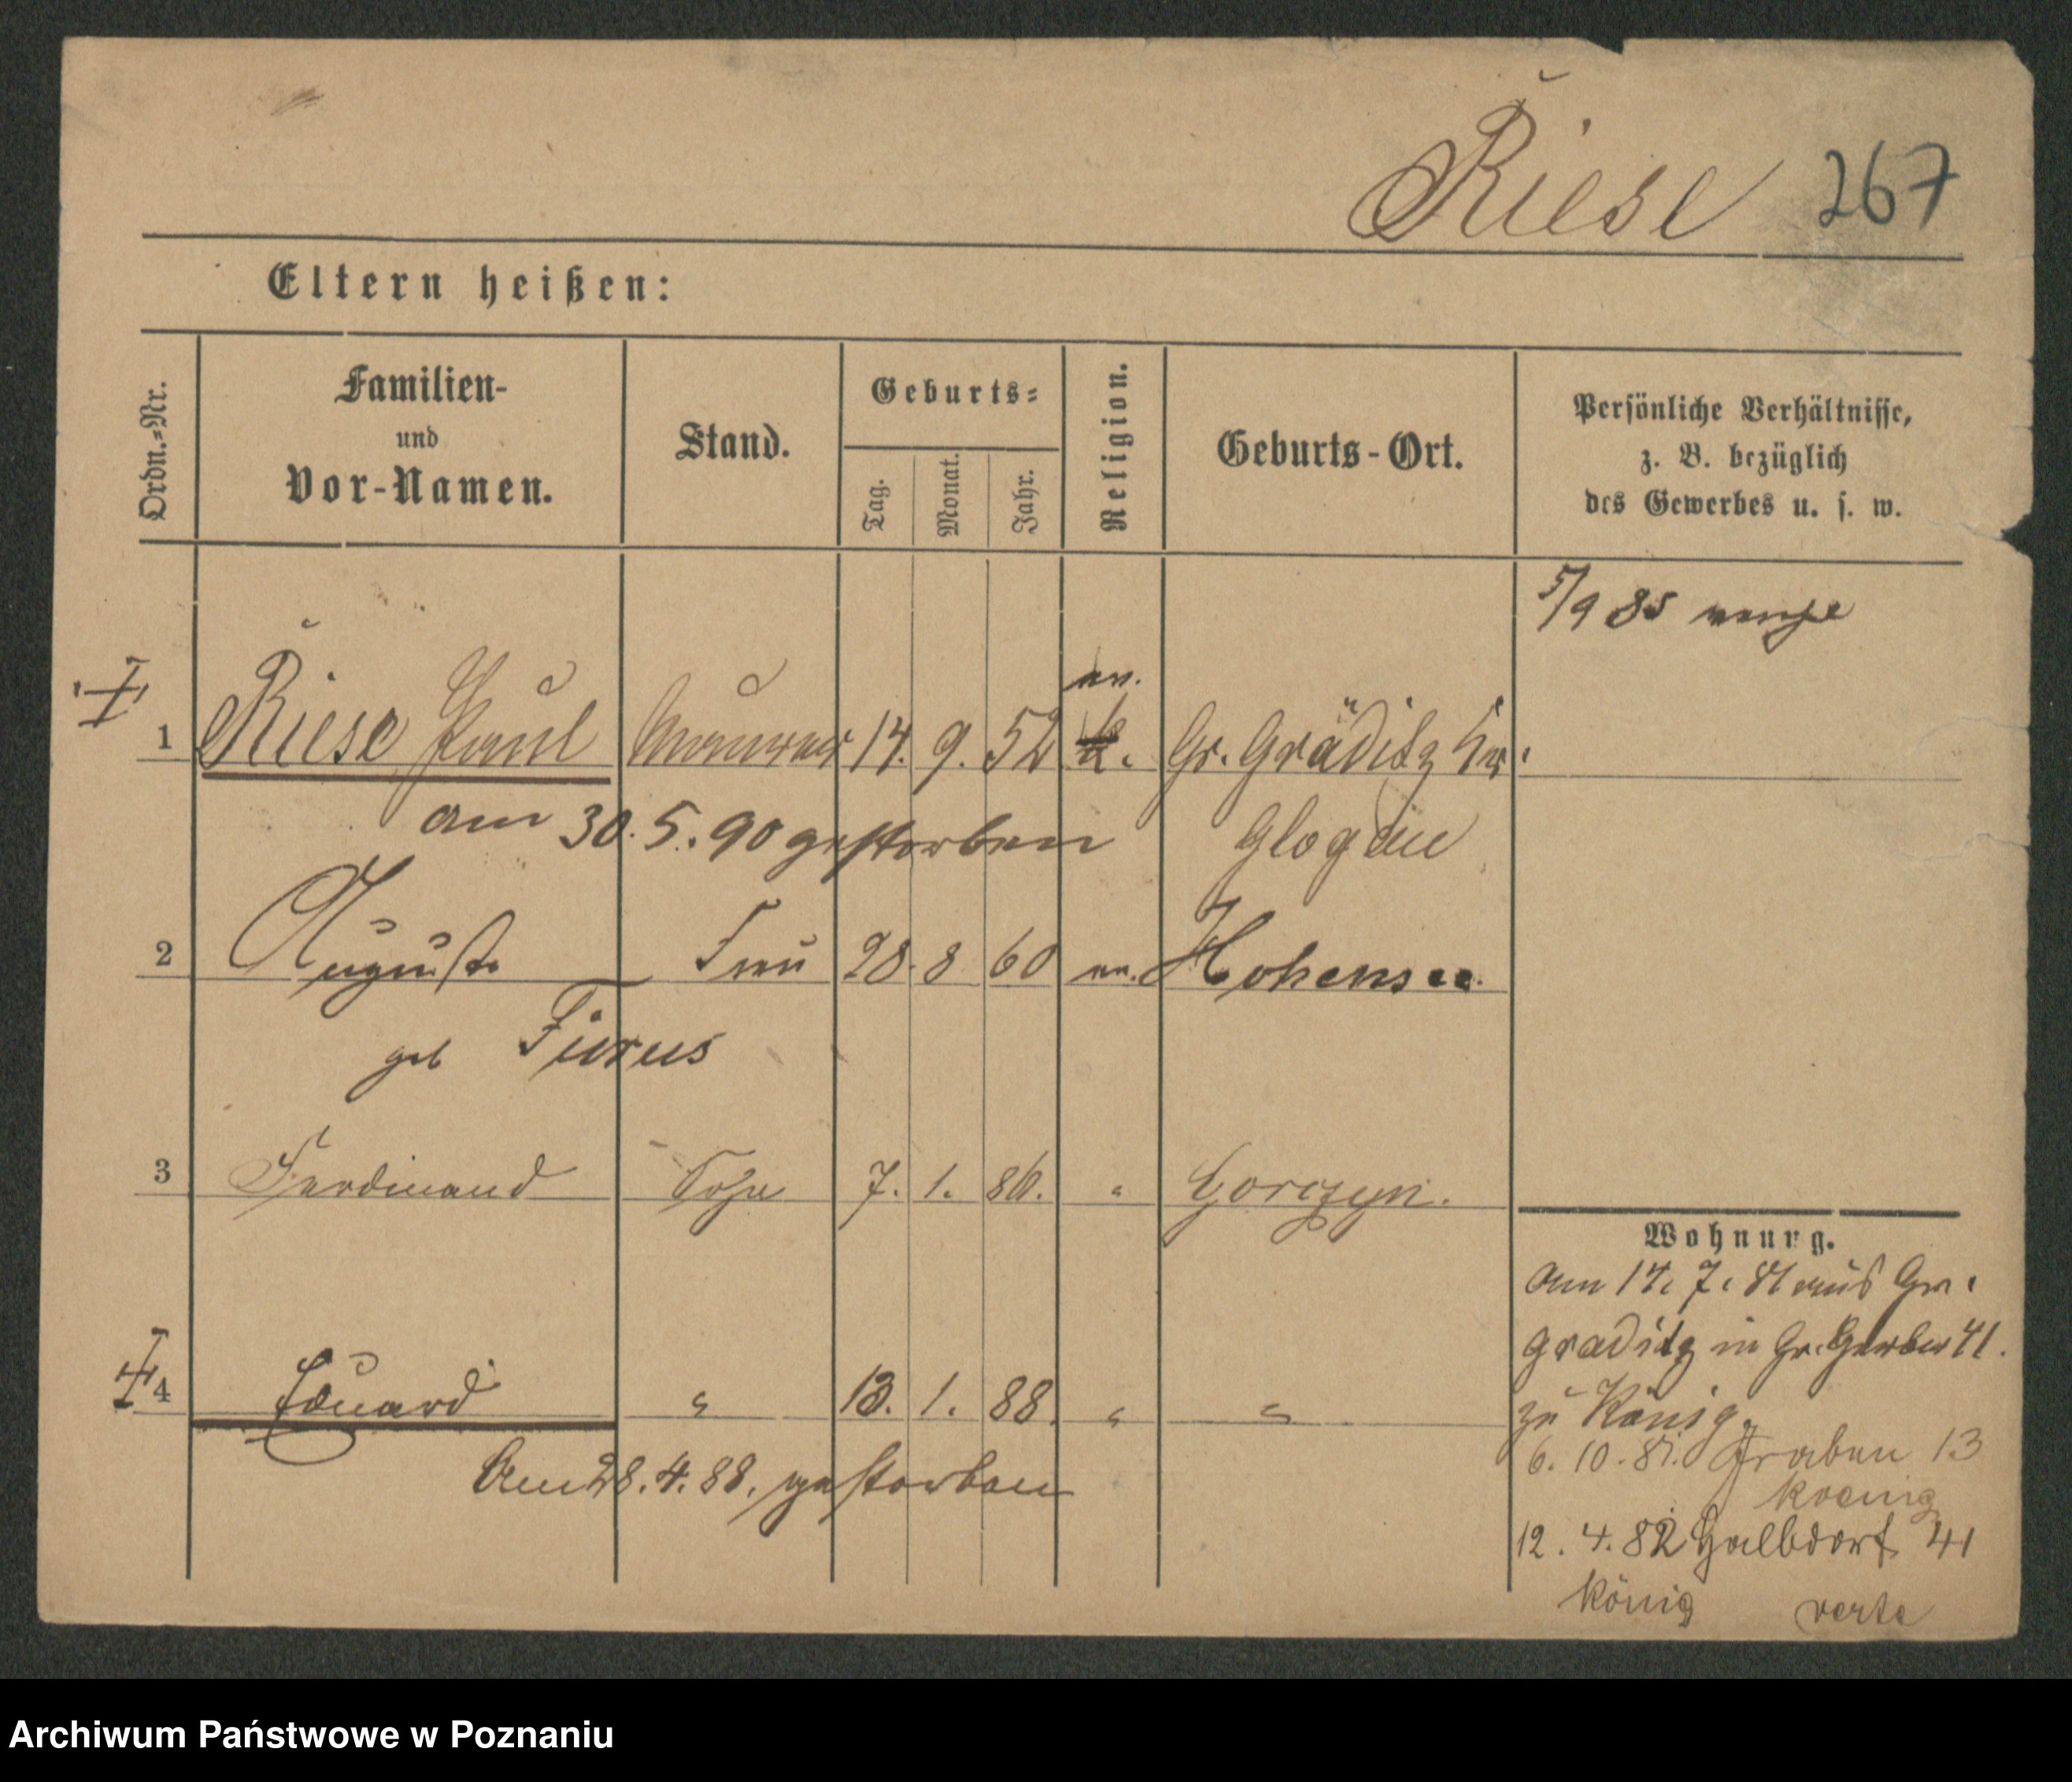 Riese 267
Eltern heißen:
Ordn.-Nr.
Familien-
und
Vor-Namen.
Stand.
Geburts-
Tag.
Monat.
Jahr.
Religion.
Geburts-Ort.
Persönliche Verhältnisse,
z. B. bezüglich
des Gewerbes u. s. w.
5/9 85
ev.
1 Riese Paul Maurer 14. 9. 52 k. Gr. Gräditz Kr.
am 30.5.90 gestorben Glogau
2 Auguste Frau 28. 8 60 ev. Hohensee.
geb
3 Ferdinand Sohn 7. 1. 86. " Gorczyn.
Wohnung.
am 14. 7. 81 aus Gr.
Graditz in Gr. Gerber 41.
4 Eduard " 13. 1. 88. " "
zu König.
6. 10. 81. Graben 13
Am 28.4.88. gestorben
Koenig
12. 4. 82 Halbdorf 41
König verte
Archiwum Państwowe w Poznaniu